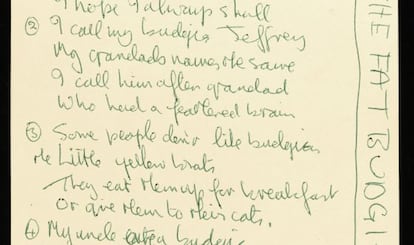 I hope I always shall
② I call my budgie Jeffrey
My grandads names the same
I call him after grandad
Who had a feathered brain
③ Some people don't like budgies
the Little yellow brats
They eat them up for breakfast
Or give them to their cats.
④ My uncle ate a budgie
THE FAT BUDGI